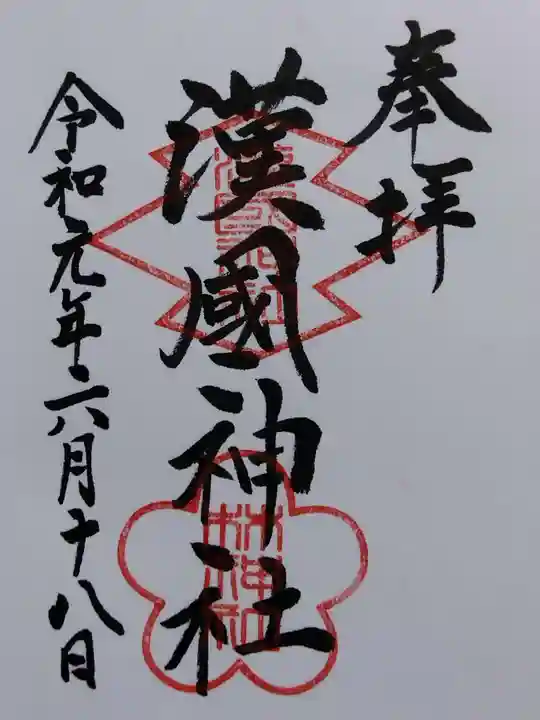 奉拝
漢國神社
漢國神社
林神社
令和元年六月十八日